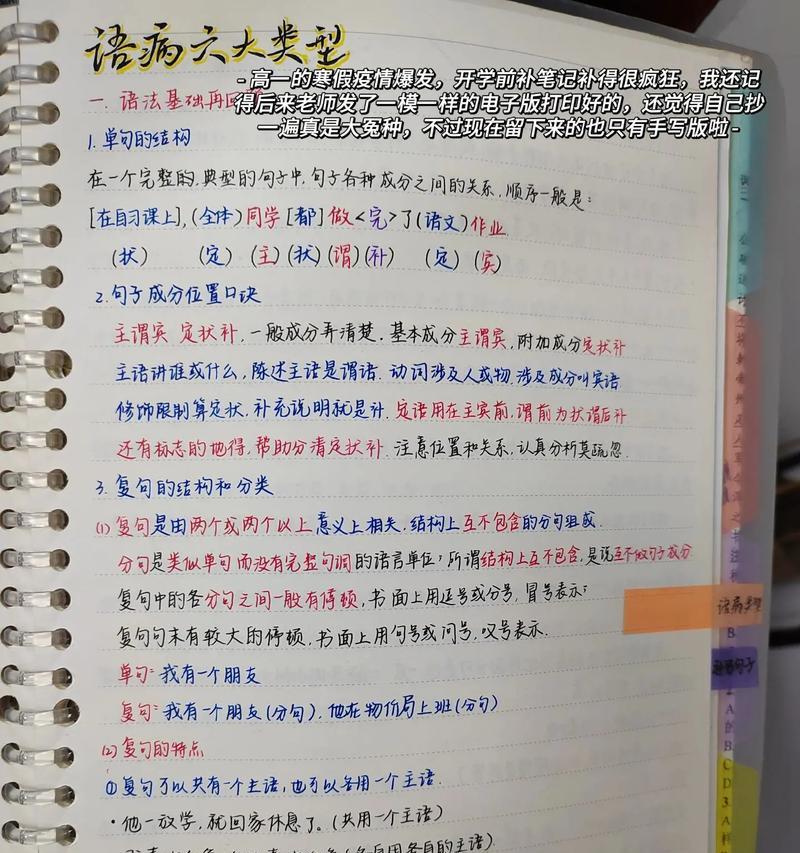 语病六大类型
- 高一的寒假疫情爆发，开学前补笔记补得很疯狂，我还记
得后来老师发了一模一样的电子版打印好的，还觉得自己抄
一遍真是大冤种，不过现在留下来的也只有手写版啦 -
一. 语法基础再回
1. 单句的结构
在一个完整的,典型的句子中,句子各种成分之间的关系,顺序一般是：
[在自习课上],(全体)同学[都]做<完>了(语文)作业
(状) (定) (主)(状)(谓)(补) (定) (宾)
2. 句子成分位置口诀
主谓宾 定状补,一般成分弄清楚.基本成分主谓宾,附加成分定状补
主语讲谁或什么,陈述主语是谓语.动词涉及人或物.涉及成分叫宾语
修饰限制算定状,补充说明就是补.定语用在主宾前,谓前为状谓后补
还有标志的地得,帮助分清定状补.注意位置和关系,认真分析莫疏忽.
3. 复句的结构和分类
(1) 复句是由两个或两个以上意义上相关,结构上互不包含的分句组成.
分句是类似单句而没有完整句调的语言单位；所谓结构上互不包含,是说互不做句子成分
复句中的各分句之间一般有停顿,书面上用逗号或分号,冒号表示；
复句句末有较大的停顿,书面上用句号或问号,叹号表示.
单句：我有一个朋友
复句：我有一个朋友(分句),他在物价局上班(分句)
(2) 复句的特点
① 复句可以共有一个主语,也可以各用一个主语.
·他一放学,就回家休息了。(共用一个主语)
各自的主语)
语病类型
句子
B.
A
的
B.
C
D
3.
A